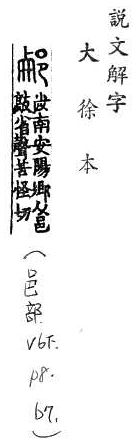 說文解字
大徐本
汝南安陽鄉从邑
省聲苦怪切
(邑部 v6下. p8. b7.)